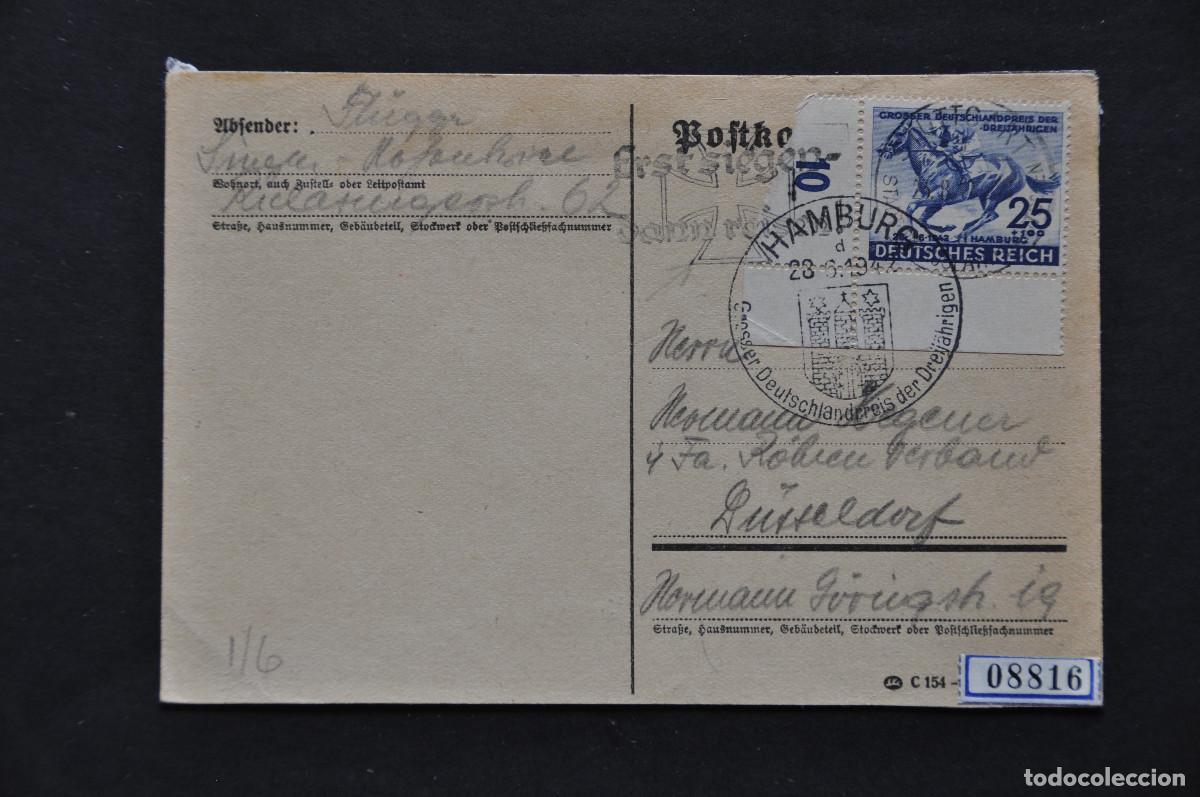 Absender: Flügge
Singen-
Wohnort, auch Zustell- oder Leitpostamt
62
Straße, Hausnummer, Gebäudeteil, Stockwerk oder Postschließfachnummer
Postka
Erst siegen-
dann
10
GROSSER DEUTSCHLANDPREIS DER
DREIJÄHRIGEN
25
+100
1942 HAMBURG
DEUTSCHES REICH
HAMBURG
d
28.6.1942
Grosser Deutschlandpreis der Dreijährigen
Herrn
Hermann Wegener
Fa. Röhren Verband
Düsseldorf
Hermann Göringstr. 19
Straße, Hausnummer, Gebäudeteil, Stockwerk oder Postschließfachnummer
1/6
C 154 -
08816
todocoleccion